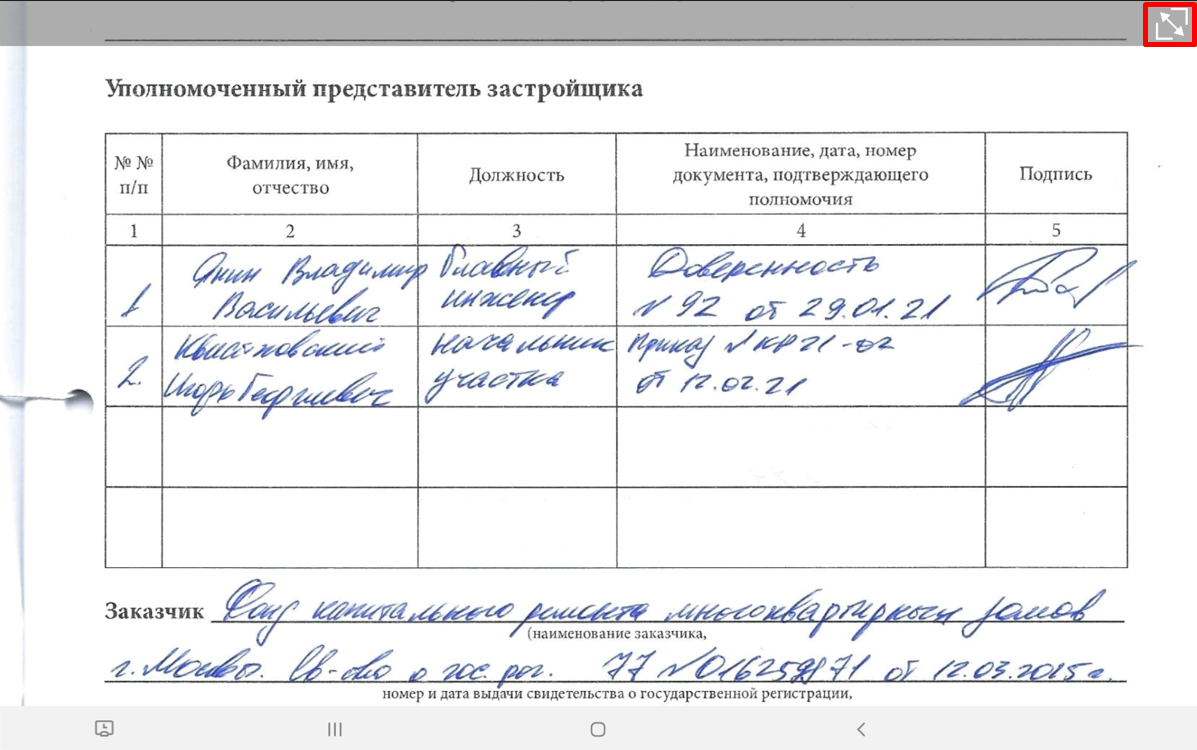 Уполномоченный представитель застройщика
№ № п/п
Фамилия, имя, отчество
Должность
Наименование, дата, номер документа, подтверждающего полномочия
Подпись
1 2 3 4 5
1 Янин Владимир Васильевич Главный инженер Доверенность N 92 от 29.01.21
2. Игорь Георгиевич начальник участка Приказ N КР21-02 от 12.02.21
Заказчик Фонд капитального ремонта многоквартирных домов
(наименование заказчика,
г. Москвы. Св-во о гос. рег. 77 N от 12.03.2015г.
номер и дата выдачи свидетельства о государственной регистрации,